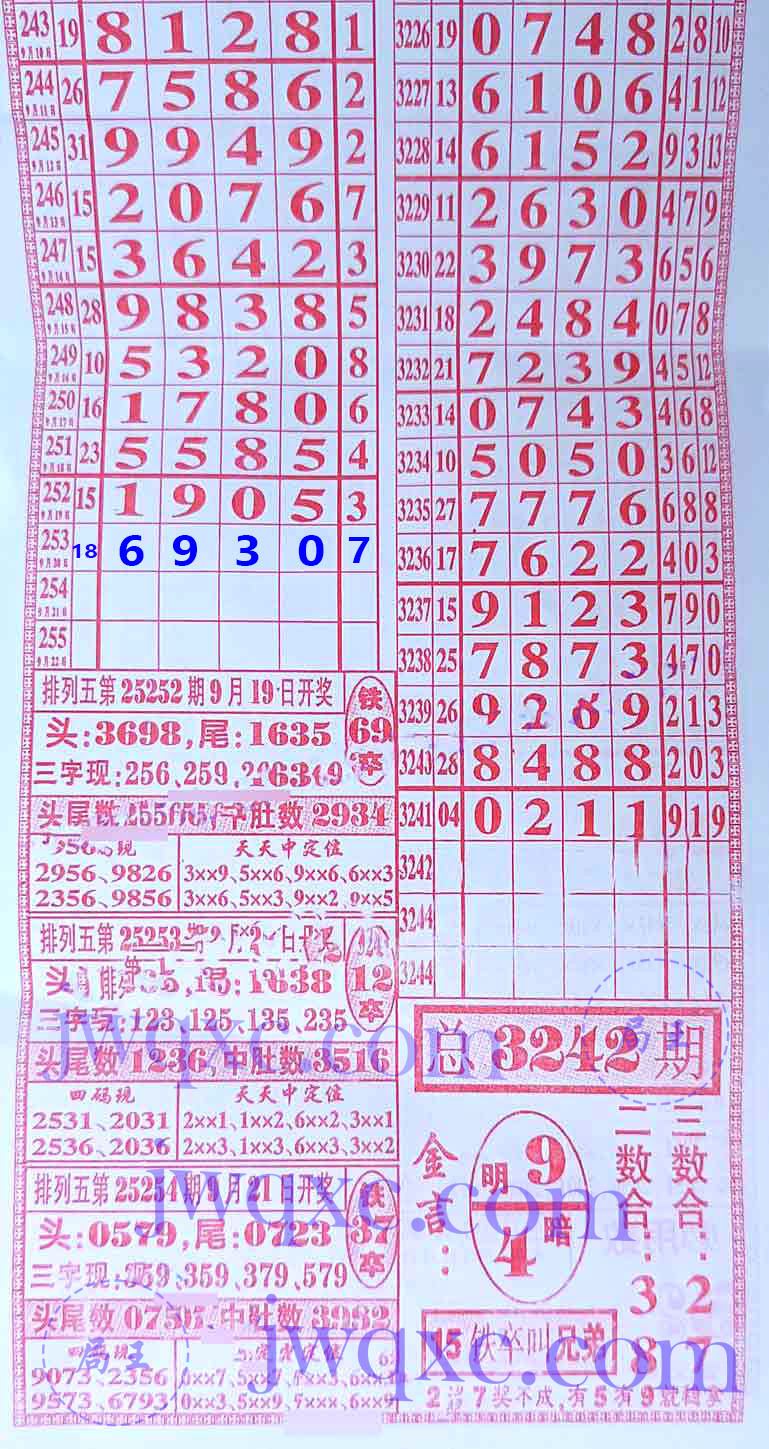 243 9月10日 19 8 1 2 8 1
244 9月11日 26 7 5 8 6 2
245 9月12日 31 9 9 4 9 2
246 9月13日 15 2 0 7 6 7
247 9月14日 15 3 6 4 2 3
248 9月15日 28 9 8 3 8 5
249 9月16日 10 5 3 2 0 8
250 9月17日 16 1 7 8 0 6
251 9月18日 23 5 5 8 5 4
252 9月19日 15 1 9 0 5 3
253 9月20日 18 6 9 3 0 7
254 9月21日
255 9月22日
排列五第25252期9月19日开奖
头:3698,尾:1635
三字现:256、259、
铁 69 卒
头尾数 中肚数2934
天天中定位
2956、9826 3××9、5××6、9××6、6××3
2356、9856 3××6、5××3、9××2、9××5
排列五第25253
1638
12 卒
三字现:123、125、135、235
头尾数1236,中肚数3516
四码现 天天中定位
2531、2031 2××1、1××2、6××2、3××1
2536、2036 2××3、1××3、6××3、3××2
排列五第25254期9月21日开奖
头:0579,尾:0723
三字现:359、359、379、579
铁 37 卒
头尾数 中肚数3982
9073、2356
9573、6793 0××3、5××9
3226 19 0 7 4 8 2 8 10
3227 13 6 1 0 6 4 1 12
3228 14 6 1 5 2 9 3 13
3229 11 2 6 3 0 4 7 9
3230 22 3 9 7 3 6 5 6
3231 18 2 4 8 4 0 7 8
3232 21 7 2 3 9 4 5 12
3233 14 0 7 4 3 4 6 8
3234 10 5 0 5 0 3 6 12
3235 27 7 7 7 6 6 8 8
3236 17 7 6 2 2 4 0 3
3237 15 9 1 2 3 7 9 0
3238 25 7 8 7 3 4 7 0
3239 26 9 2 6 9 2 1 3
3240 28 8 4 8 8 2 0 3
3241 04 0 2 1 1 9 1 9
3242
3244
3244
总3242期
金言:
明9
4暗
二数合:38
三数合:27
15铁卒叫兄弟
奖不成,有5有9
jwqxc.com
jwqxc.com
jwqxc.com
局王
局王